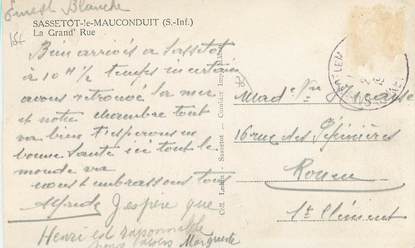 Ernest Blanche
SASSETOT-le-MAUCONDUIT (S.-Inf.)
La Grand' Rue
15f
Bien arrivés à Sassetot
à 10 H ½ temps incertain
avons retrouvé la mer
et notre chambre tout
va bien j'espérons en
bonne santé ici tout le
monde va
nous embrassons tous
Alfride J'espère que
Henri est raisonnable
Marguerite
Coll. Sassetot. — Combier Imp.
Mad
16 rue des Pépinières
Rouen
St Clément